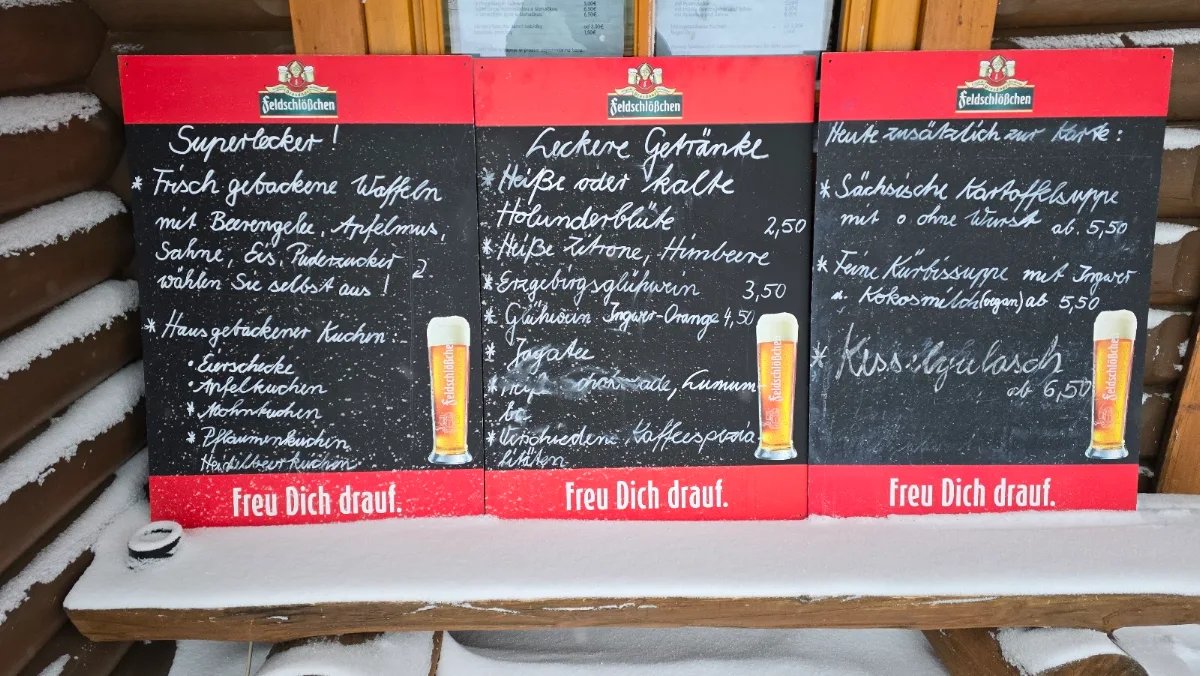 Feldschlößchen
Superlecker!
* Frisch gebackene Waffeln
mit Beerengelee, Apfelmus,
Sahne, Eis, Puderzucker
wählen Sie selbst aus!
* Hausgebackener Kuchen:
• Eierschecke
• Apfelkuchen
* Mohnkuchen
* Pflaumenkuchen
Heidelbeerkuchen
Feldschlößchen
Freu Dich drauf.
Feldschlößchen
Leckere Getränke
* Heiße oder kalte
Holunderblüte 2,50
* Heiße Zitrone, Himbeere
* Erzgebirgsglühwein 3,50
* Glühwein Ingwer-Orange 4,50
* Jagatee
* Lumum-
ba
* Verschiedene Kaffeespezia-
litäten
Feldschlößchen
Freu Dich drauf.
Feldschlößchen
Heute zusätzlich zur Karte:
* Sächsische Kartoffelsuppe
mit o ohne Wurst ab 5,50
* Feine Kürbissuppe mit Ingwer
u. Kokosmilch (vegan) ab 5,50
* Kesselgulasch
ab 6,50
Feldschlößchen
Freu Dich drauf.